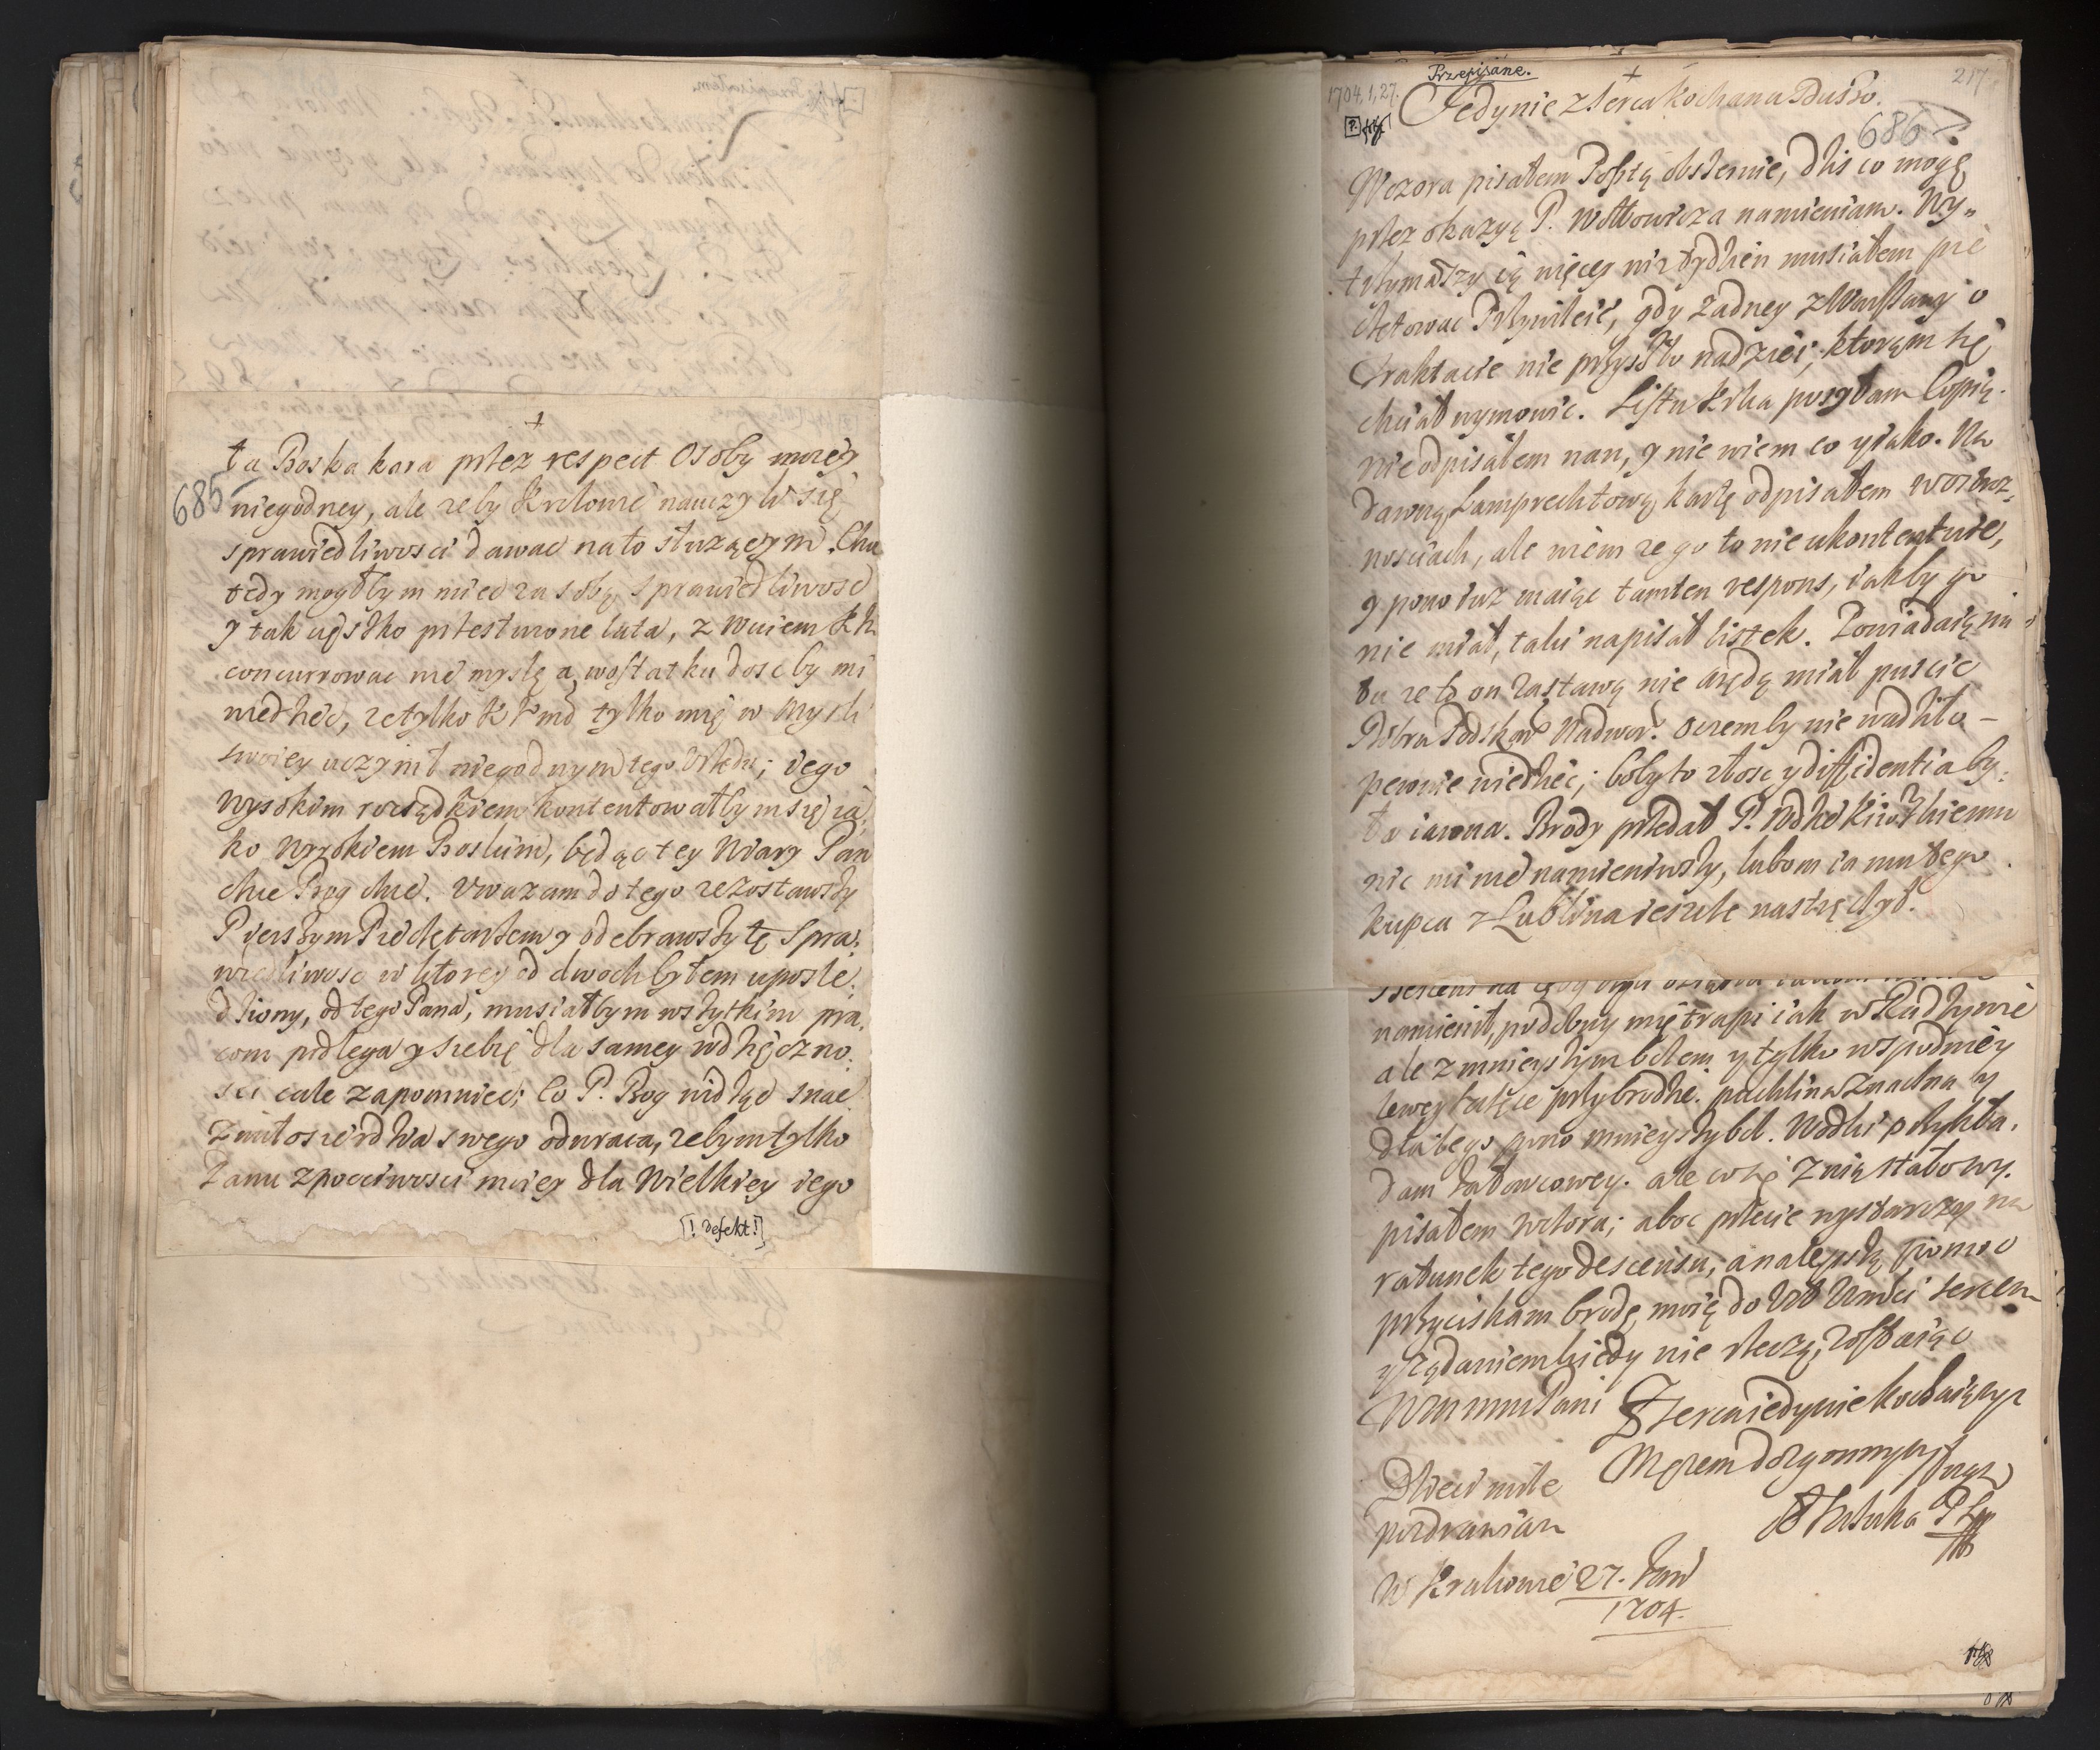 685
+
ta Boska kara przez respect Osoby moiey
niegodney, ale zeby Krolowie nauczyli się
sprawiedliwosci dawac na to słuzącym. Cho
tedy mogłbym miec za sobą sprawiedliwosc
y tak cięszko przesłuzone lata, z Wuiem
concurrowac nie myslę a wostatku dosc by mi
niedziec, ze tylko tylko mię w mysli
swoiey uczynił niegodnym tego Urzędu; iego
wysokim rozsądkiem kontentowałbym się ia,
ko wyrokiem Boskim, będąc tey Wiary
chce Bog chce. Uwazam do tego ze zostawszy
Pierszym Pieczętarzem y odebrawszy tę Spra,
wiedliwosc w ktorey od dwoch byłem uposle,
dzony, od tego Pana, musiałbym wszytkim pra,
com podlega y siebie dla samey wdzięczno,
sci cale zapomniec; Co P. Bog widząc snac
z miłosierdzia swego odwraca, zebym tylko
Panu z poccziwosci moiey dla Wielkiey iego
[! Defekt!]
217
Przepisane.
1704, 1, 27.
+
Jedynie z Serca kochana Duszo.
[?]
686
Wczora pisałem Posztą obszernie, dzis co mogę
przez okazyą P. Wołłowicza namieniam. Wy„
trzymawszy ią więcey niz tydzien musiałem pie
czętowac Przywileie, gdy zadney z Warszawy o
Traktacie nie przyszło nadziei, ktorąm się
chciał wymowic. Listu Krla posyłam Copią.
nie odpisałem nan, y nie wiem co y iako. Na
dawną Lamprechtową kartę odpisałem
nosciach, ale wiem ze go to nie ukontentuie,
y pono iuz maiąc tamten respons, iakby go
nie miał, taki napisał listek. Powiadaią mi
tu ze to on Zastawą nie arędą miał puscic
Dobra Podskar Nadwor. oczem by nie wadziło –
pewnie wiedziec; bo by to złosc y diffidentia by,
ła iawna. Brody przedał P. Wdzie Kiiowskiemu
nic mi nie namieniwszy, lubom ia mu tego
kupca z Lublina ieszcze nastręczył.
namienił, podobny mię trapi iak w Radzynie
ale z mnieyszym bolem y tylko w spodniey
lewey szczęce przy brodzie. puchlina znaczna y
dla tego pono mnieyszy bol. Wodki przykła,
dam ale co się z nią stało wy,
pisałem wczora; aboc przecie wystarczy na
ratunek tego descensu, a na lepszą pomoc
przyciskam brodę moię do Ust Umści sercem
y ządaniem kiedy nie rzeczą, zostaiąc
WMMmPani
Z serca iedynie kochaiącym
Męzem dozgonnym y sługą
Dzieci miłe
pozdrawiam
W Krakowie 27. Janu
1704.